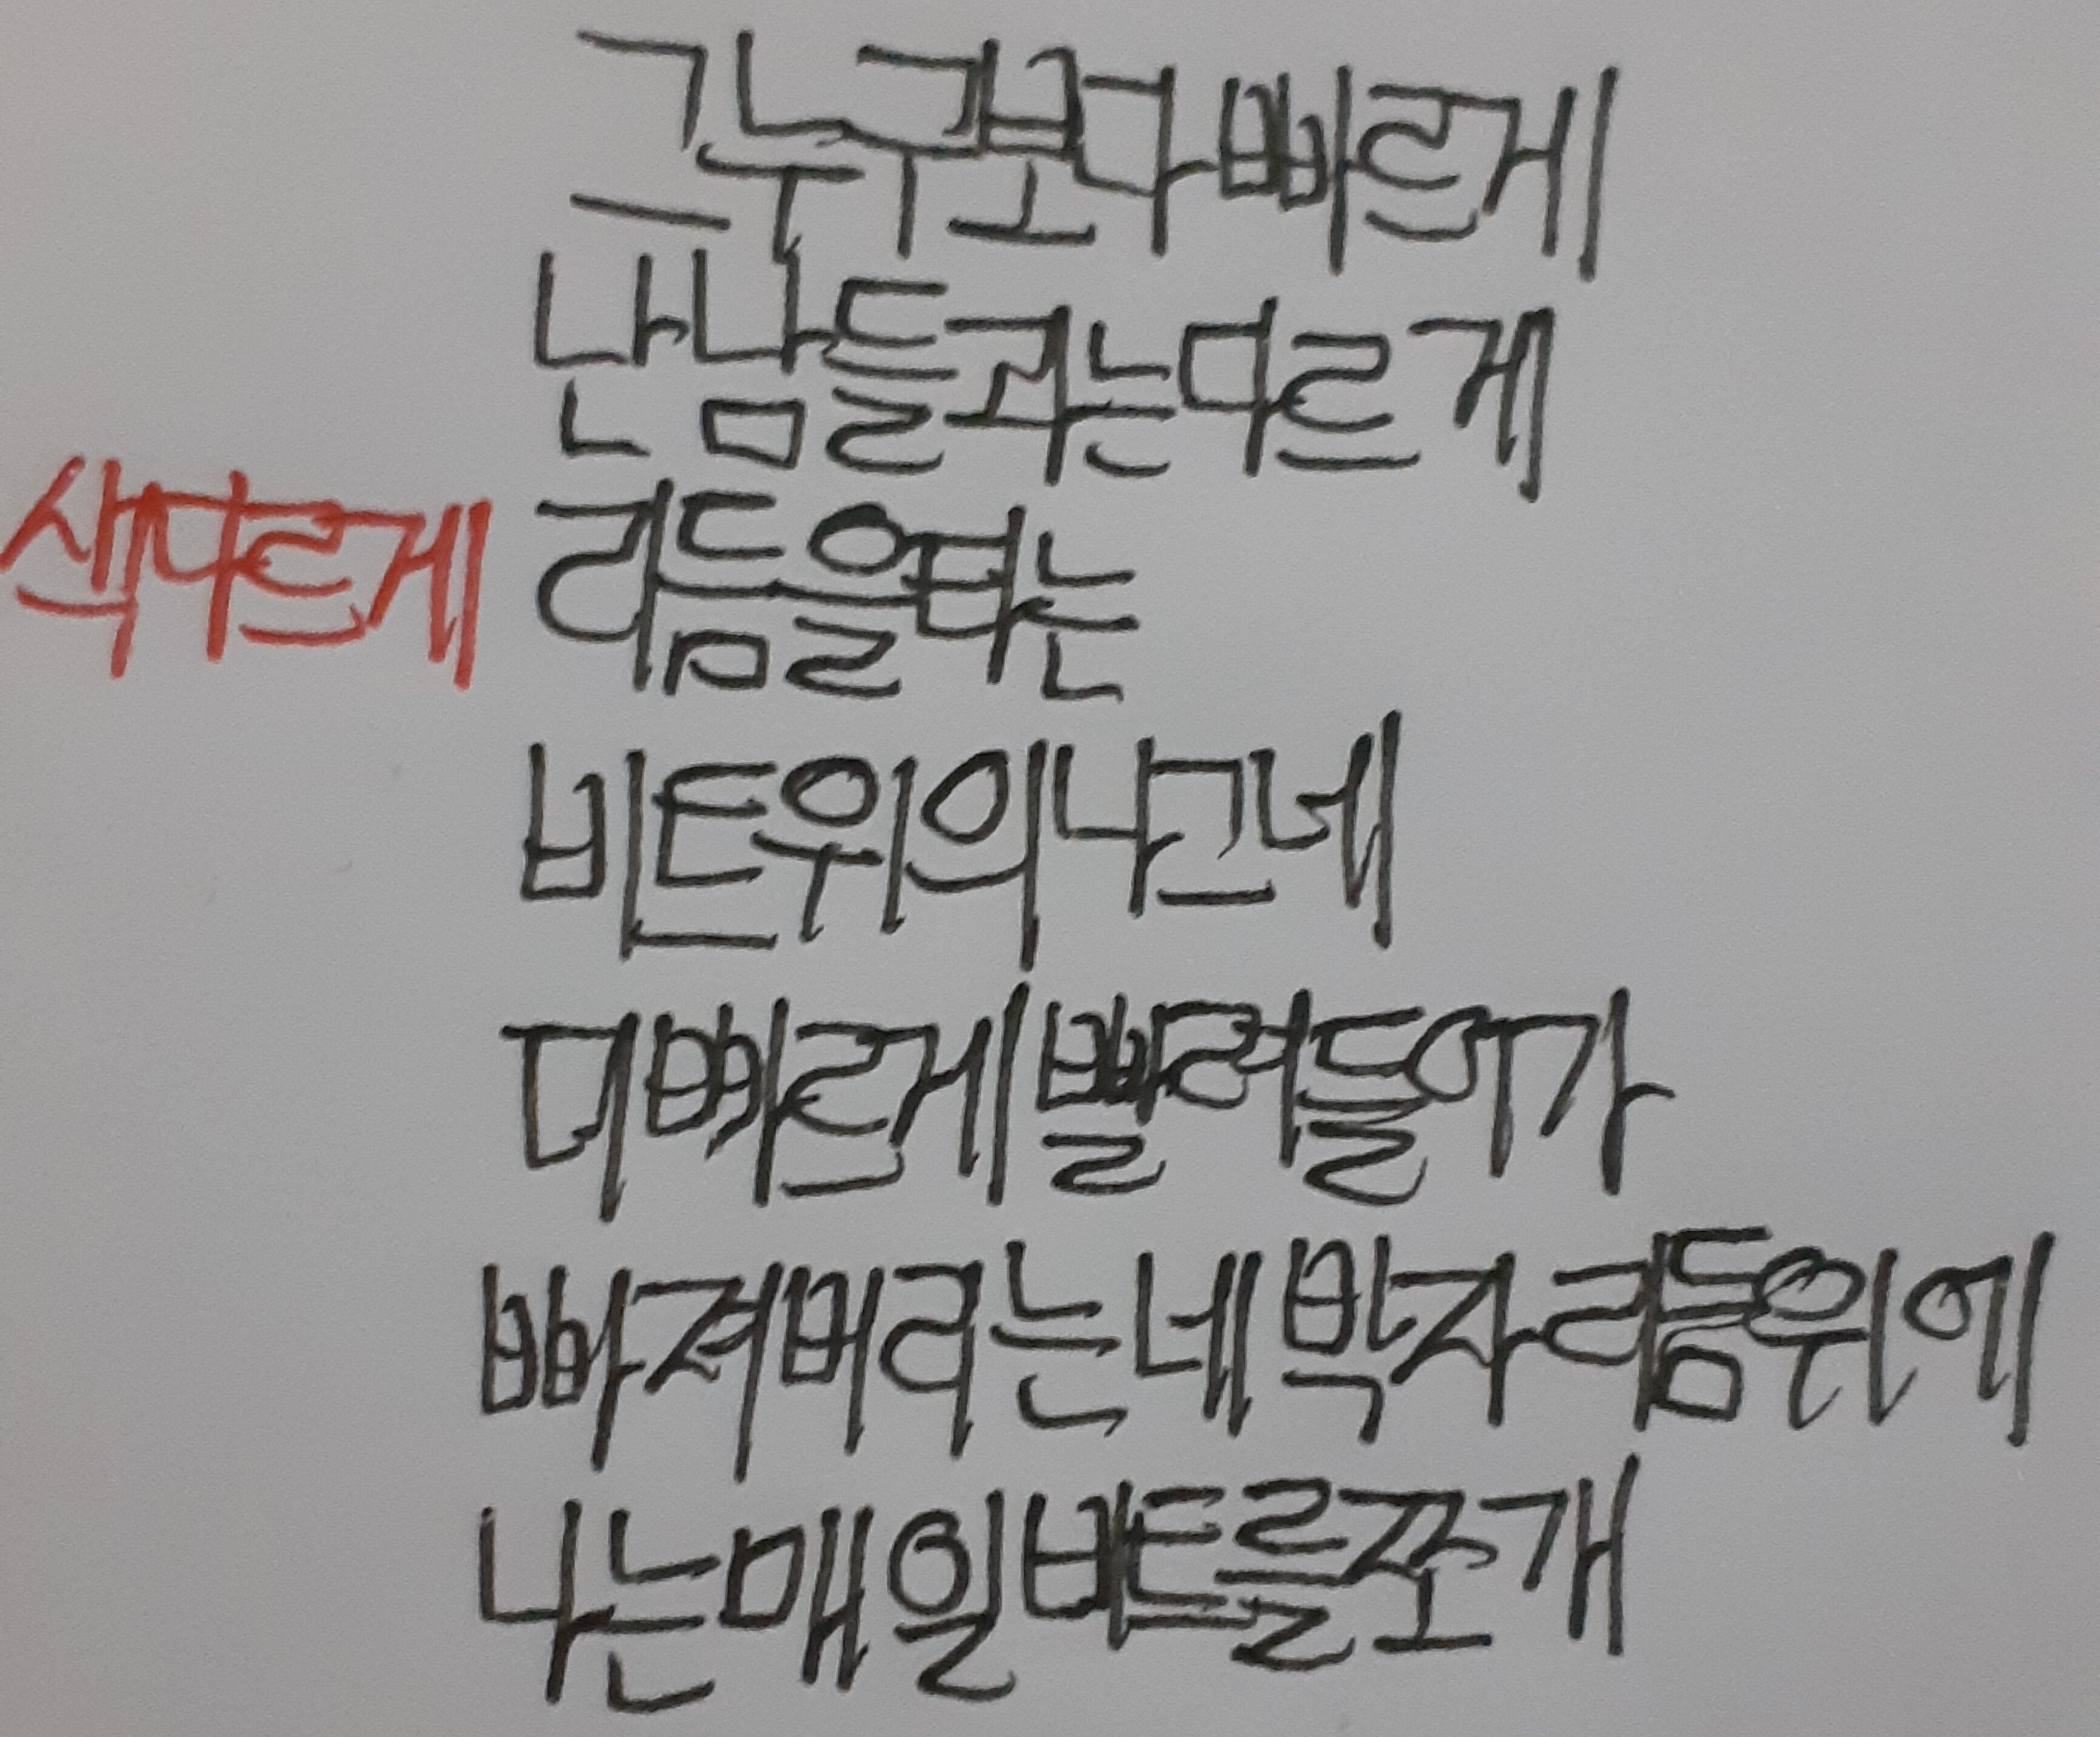 그누구보다 빠르게
난 남들과는 다르게
색다르게 리듬을 타는
비트위의 나그네
더 빠르게 빨려들어가
빠져버리는 네 박자 리듬 위에
나는 매일 비트를 쪼개